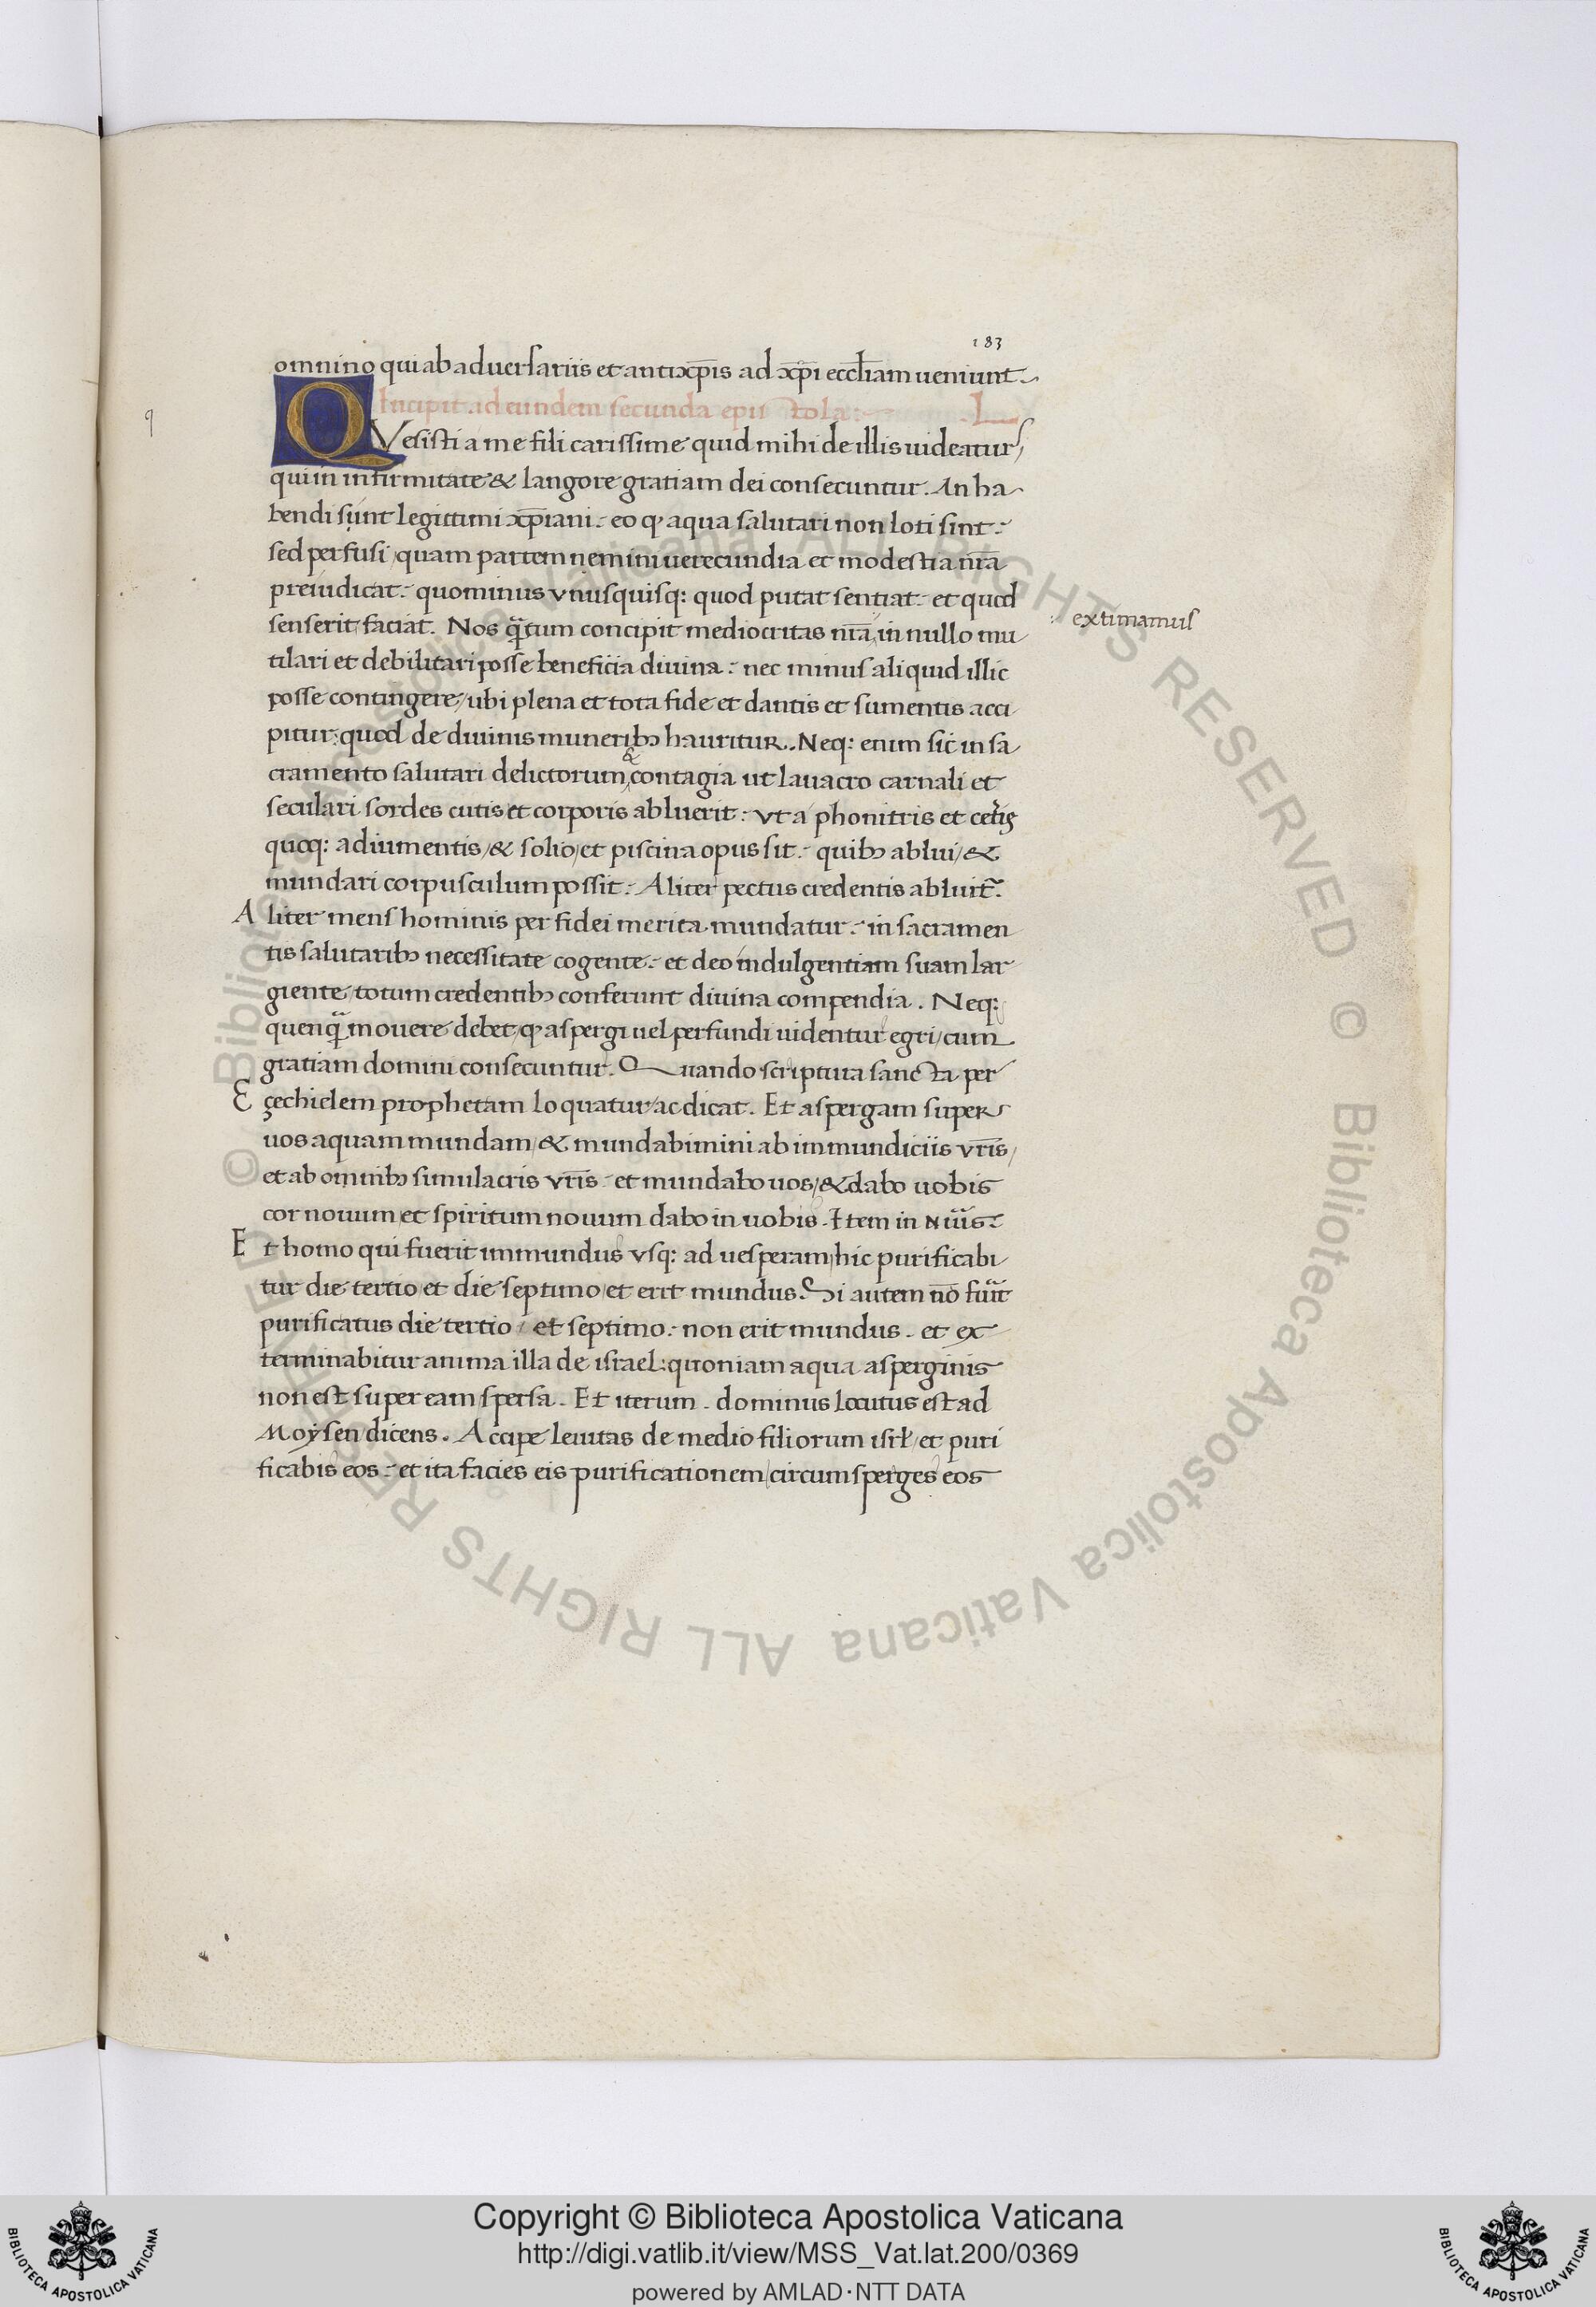 183
omnino qui ab aduersariis et antixp̄is ad xp̄i eccl̄iam ueniunt.
Incipit ad eundem secunda epistola: L
QVesisti a me fili carissime quid mihi de illis uideatur/
qui in infirmitate & langore gratiam dei consecuntur. An ha
bendi sunt legittimi xp̄iani: eo ꝙ aqua salutari non loti sint:
sed perfusi/quam partem nemini uerecundia et modestia nr̄a
preiudicat: quominus vnusquisq: quod putat sentiat: et quod
senserit faciat. Nos q̄tum concipit mediocritas nr̄a/in nullo mu
extimamus
tilari et debilitari posse beneficia diuina: nec minus aliquid illic
posse contingere/ubi plena et tota fide et dantis et sumentis acci
pitur: quod de diuinis muneribꝫ hauritur. Neq: enim sic in sa
&
cramento salutari delictorum contagia ut lauacro carnali et
seculari sordes cutis et corporis abluerit: vt a phonitris et cet̃is
quoq: adiumentis/& solio/et piscina opus sit: quibꝫ ablui/&
mundari corpusculum possit: Aliter pectus credentis abluit̃.
Aliter mens hominis per fidei merita mundatur: in sacramen
tis salutaribꝫ necessitate cogente: et deo indulgentiam suam lar
giente/totum credentibꝫ conferunt diuina compendia. Neq:
quenq̄ mouere debet/ꝙ aspergi uel perfundi uidentur egri/cum
gratiam domini consecuntur. Quando scriptura sancta per
Eçechielem prophetam loquatur/ac dicat. Et aspergam super
uos aquam mundam/& mundabimini ab immundiciis vr̄is/
et ab omnibꝫ simulacris vr̄is: et mundabo uos/& dabo uobis
cor nouum et spiritum nouum dabo in uobis. Item in Nūis:
Et homo qui fuerit immundus vsq: ad uesperam/hic purificabi
tur die tertio/et die septimo/et erit mundus. Si autem nō fūit
purificatus die tertio et septimo: non erit mundus. et ex
terminabitur anima illa de israel: quoniam aqua asperginis
non est super eam spersa. Et iterum. dominus locutus est ad
Moysen/dicens. Accipe leuitas de medio filiorum isrł/et puri
ficabis eos: et ita facies eis purificationem/circumsperges eos
Copyright © Biblioteca Apostolica Vaticana
http://digi.vatlib.it/view/MSS_Vat.lat.200/0369
powered by AMLAD·NTT DATA